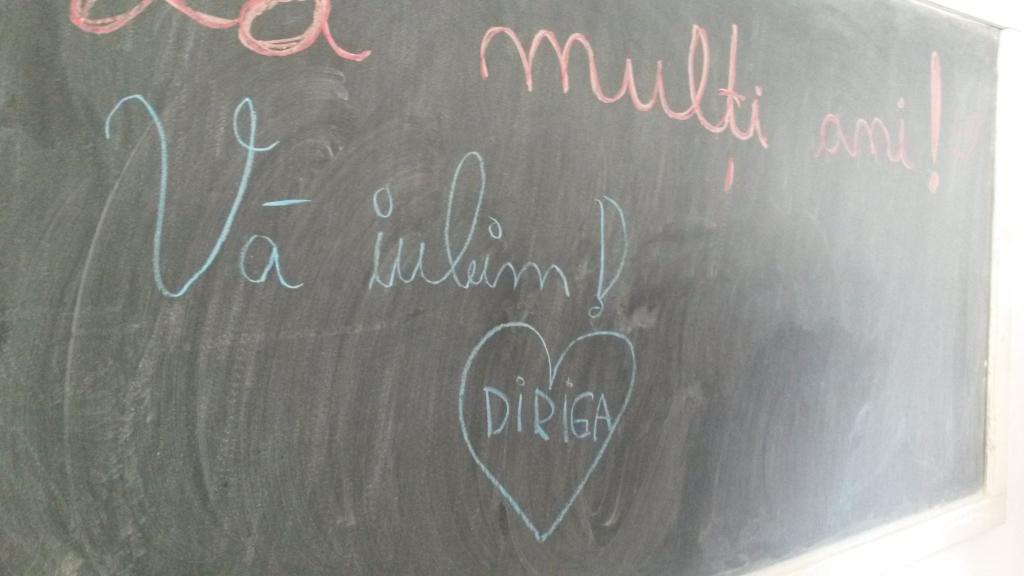 La mulți ani!
Vă iubim!
DIRIGA